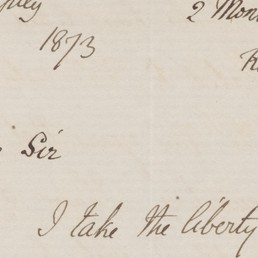 2 Mon
1873
Sir
I take the liberty